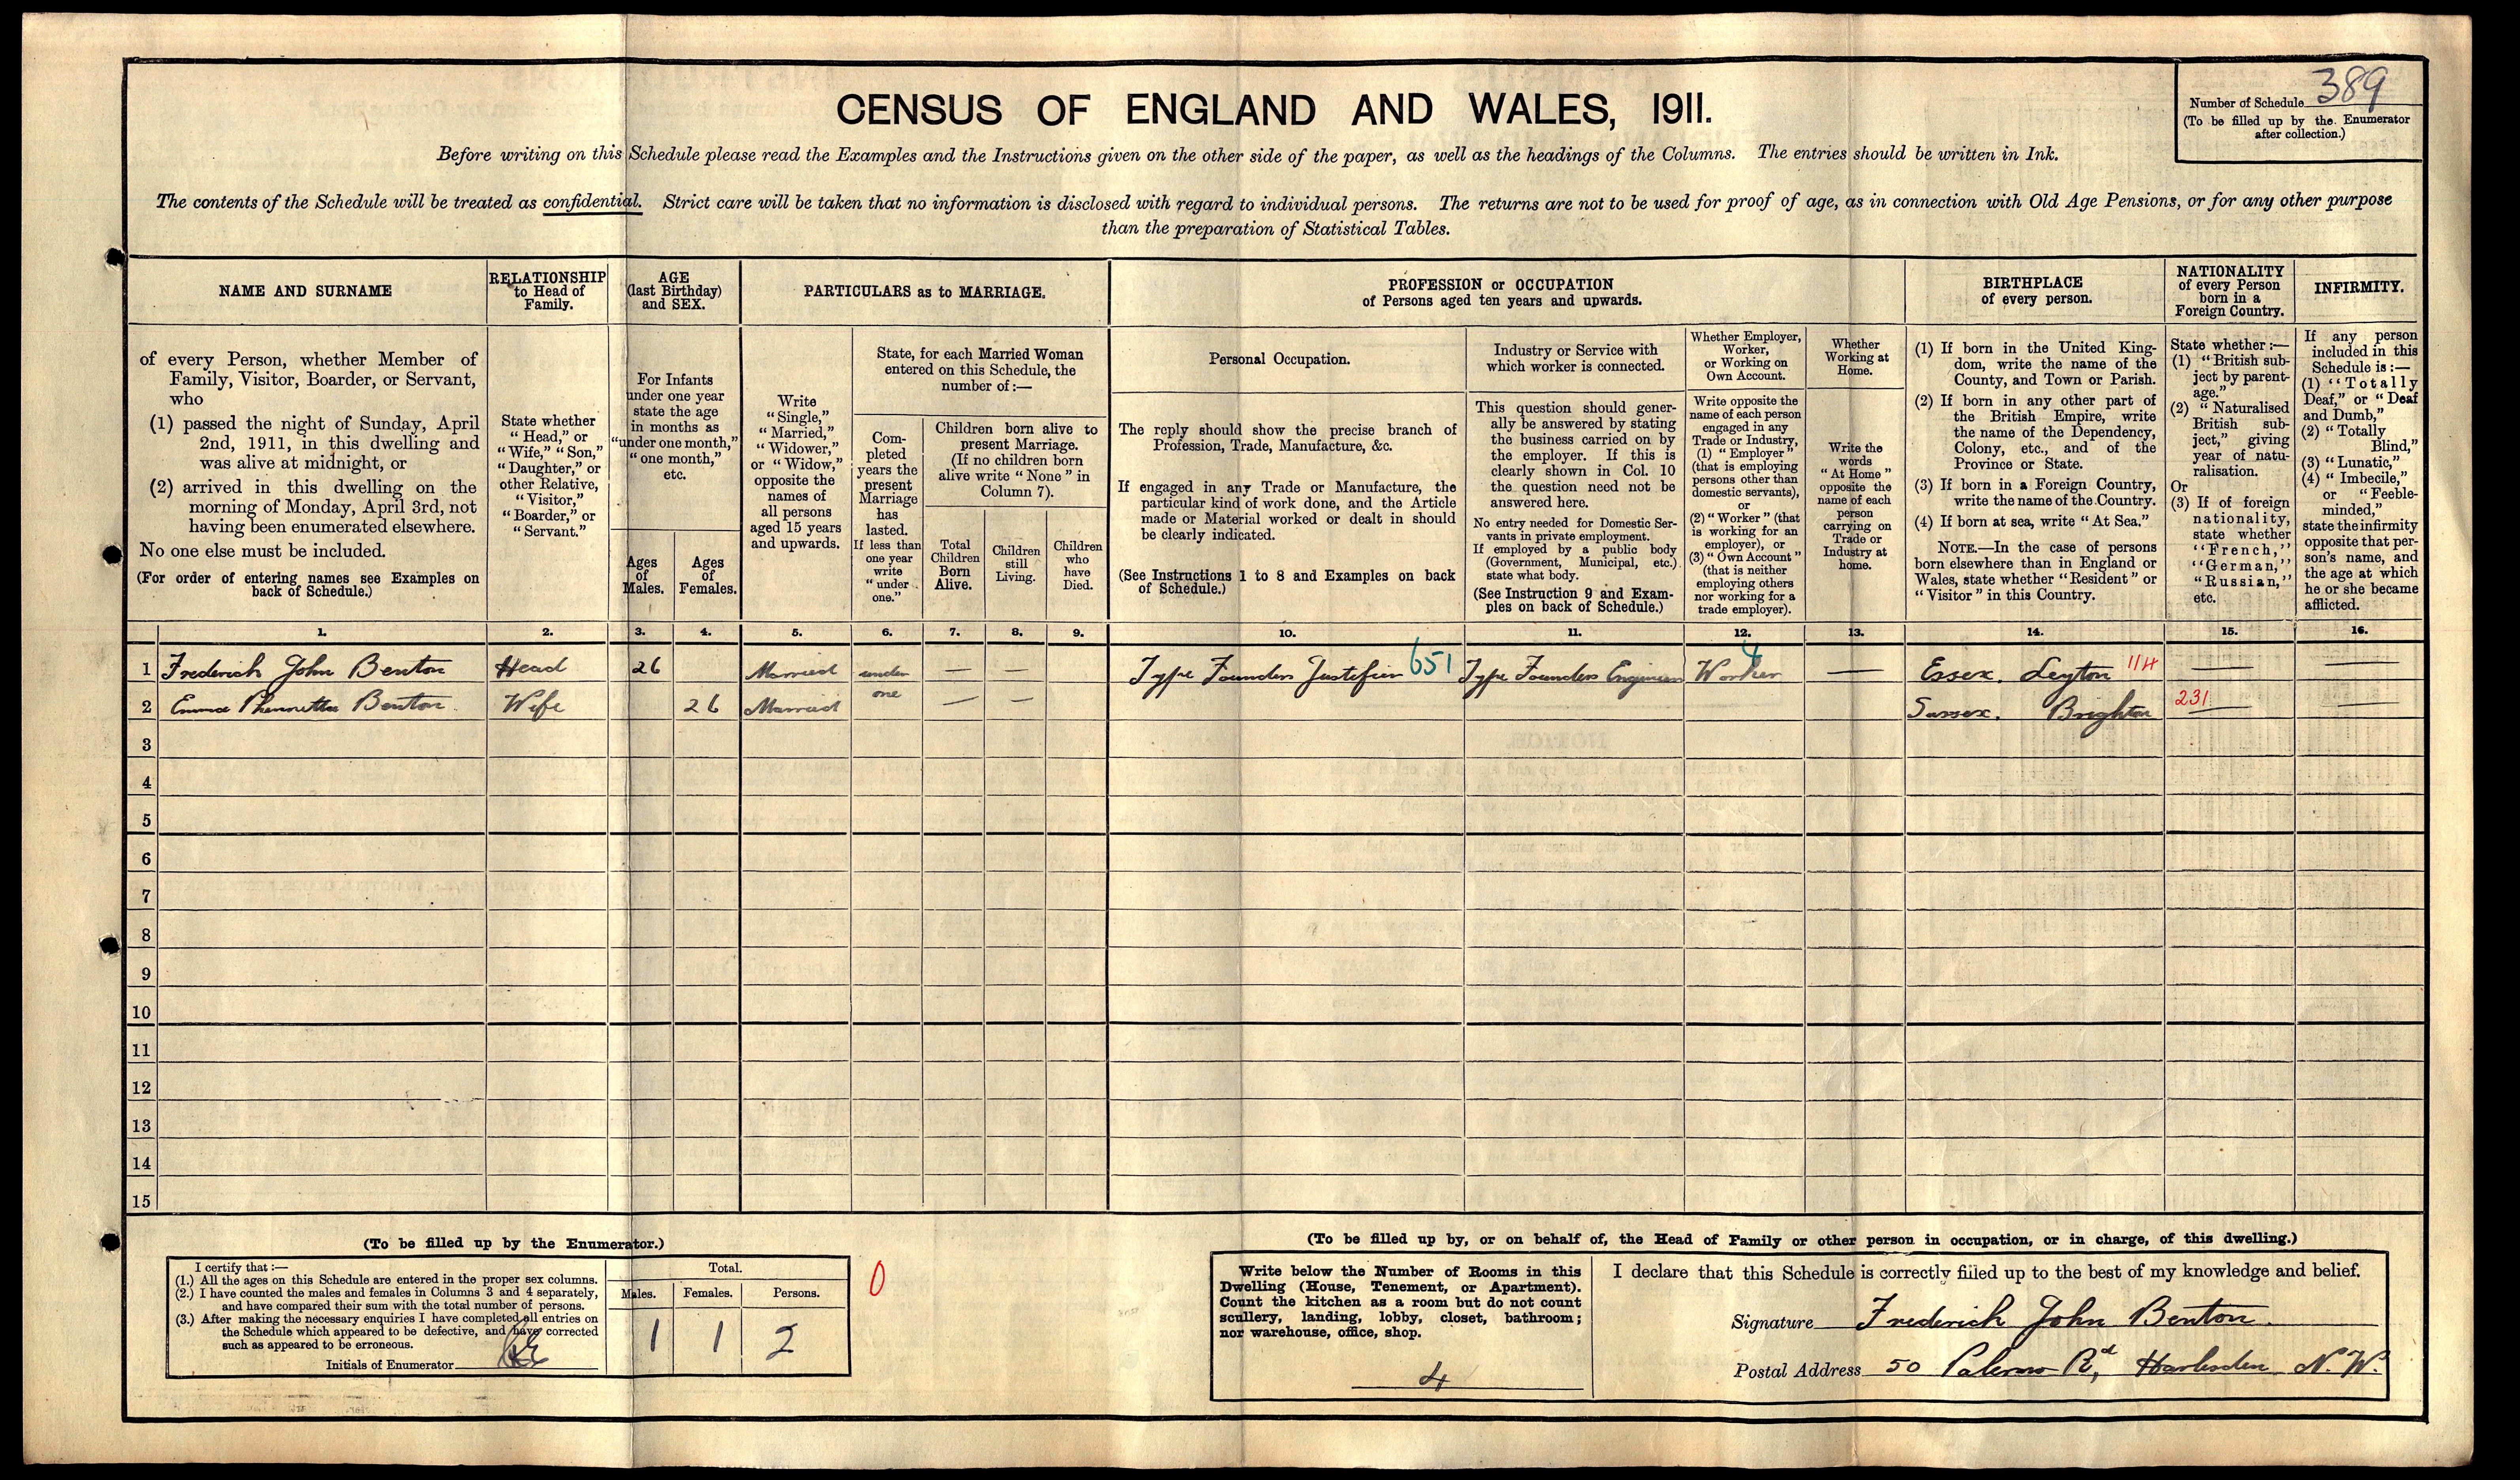 CENSUS OF ENGLAND AND WALES, 1911.
Number of Schedule 389
(To be filled up by the Enumerator
after collection.)
Before writing on this Schedule please read the Examples and the Instructions given on the other side of the paper, as well as the headings of the Columns. The entries should be written in Ink.
The contents of the Schedule will be treated as confidential. Strict care will be taken that no information is disclosed with regard to individual persons. The returns are not to be used for proof of age, as in connection with Old Age Pensions, or for any other purpose
than the preparation of Statistical Tables.
NAME AND SURNAME
RELATIONSHIP
to Head of
Family.
AGE
(last Birthday)
and SEX.
PARTICULARS as to MARRIAGE.
PROFESSION or OCCUPATION
of Persons aged ten years and upwards.
BIRTHPLACE
of every person.
NATIONALITY
of every Person
born in a
Foreign Country.
INFIRMITY.
of every Person, whether Member of
Family, Visitor, Boarder, or Servant,
who
(1) passed the night of Sunday, April
2nd, 1911, in this dwelling and
was alive at midnight, or
(2) arrived in this dwelling on the
morning of Monday, April 3rd, not
having been enumerated elsewhere.
No one else must be included.
(For order of entering names see Examples on
back of Schedule.)
State whether
"Head," or
"Wife," "Son,"
"Daughter," or
other Relative,
"Visitor,"
"Boarder," or
"Servant."
For Infants
under one year
state the age
in months as
"under one month,"
"one month,"
etc.
Ages
of
Males.
Ages
of
Females.
Write
"Single,"
"Married,"
"Widower,"
or "Widow,"
opposite the
names of
all persons
aged 15 years
and upwards.
State, for each Married Woman
entered on this Schedule, the
number of:—
Com-
pleted
years the
present
Marriage
has
lasted.
If less than
one year
write
"under
one."
Children born alive to
present Marriage.
(If no children born
alive write "None" in
Column 7).
Total
Children
Born
Alive.
Children
still
Living.
Children
who
have
Died.
Personal Occupation.
The reply should show the precise branch of
Profession, Trade, Manufacture, &c.
If engaged in any Trade or Manufacture, the
particular kind of work done, and the Article
made or Material worked or dealt in should
be clearly indicated.
(See Instructions 1 to 8 and Examples on back
of Schedule.)
Industry or Service with
which worker is connected.
This question should gener-
ally be answered by stating
the business carried on by
the employer. If this is
clearly shown in Col. 10
the question need not be
answered here.
No entry needed for Domestic Ser-
vants in private employment.
If employed by a public body
(Government, Municipal, etc.)
state what body.
(See Instruction 9 and Exam-
ples on back of Schedule.)
Whether Employer,
Worker,
or Working on
Own Account.
Write opposite the
name of each person
engaged in any
Trade or Industry,
(1) "Employer"
(that is employing
persons other than
domestic servants),
or
(2) "Worker" (that
is working for an
employer), or
(3) "Own Account"
(that is neither
employing others
nor working for a
trade employer).
Whether
Working at
Home.
Write the
words
"At Home"
opposite the
name of each
person
carrying on
Trade or
Industry at
home.
(1) If born in the United King-
dom, write the name of the
County, and Town or Parish.
(2) If born in any other part of
the British Empire, write
the name of the Dependency,
Colony, etc., and of the
Province or State.
(3) If born in a Foreign Country,
write the name of the Country.
(4) If born at sea, write "At Sea."
NOTE.—In the case of persons
born elsewhere than in England or
Wales, state whether "Resident" or
"Visitor" in this Country.
State whether:—
(1) "British sub-
ject by parent-
age."
(2) "Naturalised
British sub-
ject," giving
year of natu-
ralisation.
Or
(3) If of foreign
nationality,
state whether
"French,"
"German,"
"Russian,"
etc.
If any person
included in this
Schedule is:—
(1) "Totally
Deaf," or "Deaf
and Dumb,"
(2) "Totally
Blind,"
(3) "Lunatic,"
(4) "Imbecile,"
or "Feeble-
minded,"
state the infirmity
opposite that per-
son's name, and
the age at which
he or she became
afflicted.
1. 2. 3. 4. 5. 6. 7. 8. 9. 10. 11. 12. 13. 14. 15. 16.
1 Frederick John Benton Head 26 Married under one — — Type Founders Justifier 651 Type Founders Engineer Worker 4 — Essex. Leyton 114 — —
2 Emma Benton. Wife 26 Married — — Sussex. Brighton 231 — —
3
4
5
6
7
8
9
10
11
12
13
14
15
(To be filled up by the Enumerator.)
I certify that:—
(1.) All the ages on this Schedule are entered in the proper sex columns.
(2.) I have counted the males and females in Columns 3 and 4 separately,
and have compared their sum with the total number of persons.
(3.) After making the necessary enquiries I have completed all entries on
the Schedule which appeared to be defective, and have corrected
such as appeared to be erroneous.
Initials of Enumerator
Total.
Males. Females. Persons.
1 1 2
0
(To be filled up by, or on behalf of, the Head of Family or other person in occupation, or in charge, of this dwelling.)
Write below the Number of Rooms in this
Dwelling (House, Tenement, or Apartment).
Count the kitchen as a room but do not count
scullery, landing, lobby, closet, bathroom;
nor warehouse, office, shop.
4
I declare that this Schedule is correctly filled up to the best of my knowledge and belief.
Signature Frederick John Benton.
Postal Address 50 Palermo Rd, Harlesden N.W.